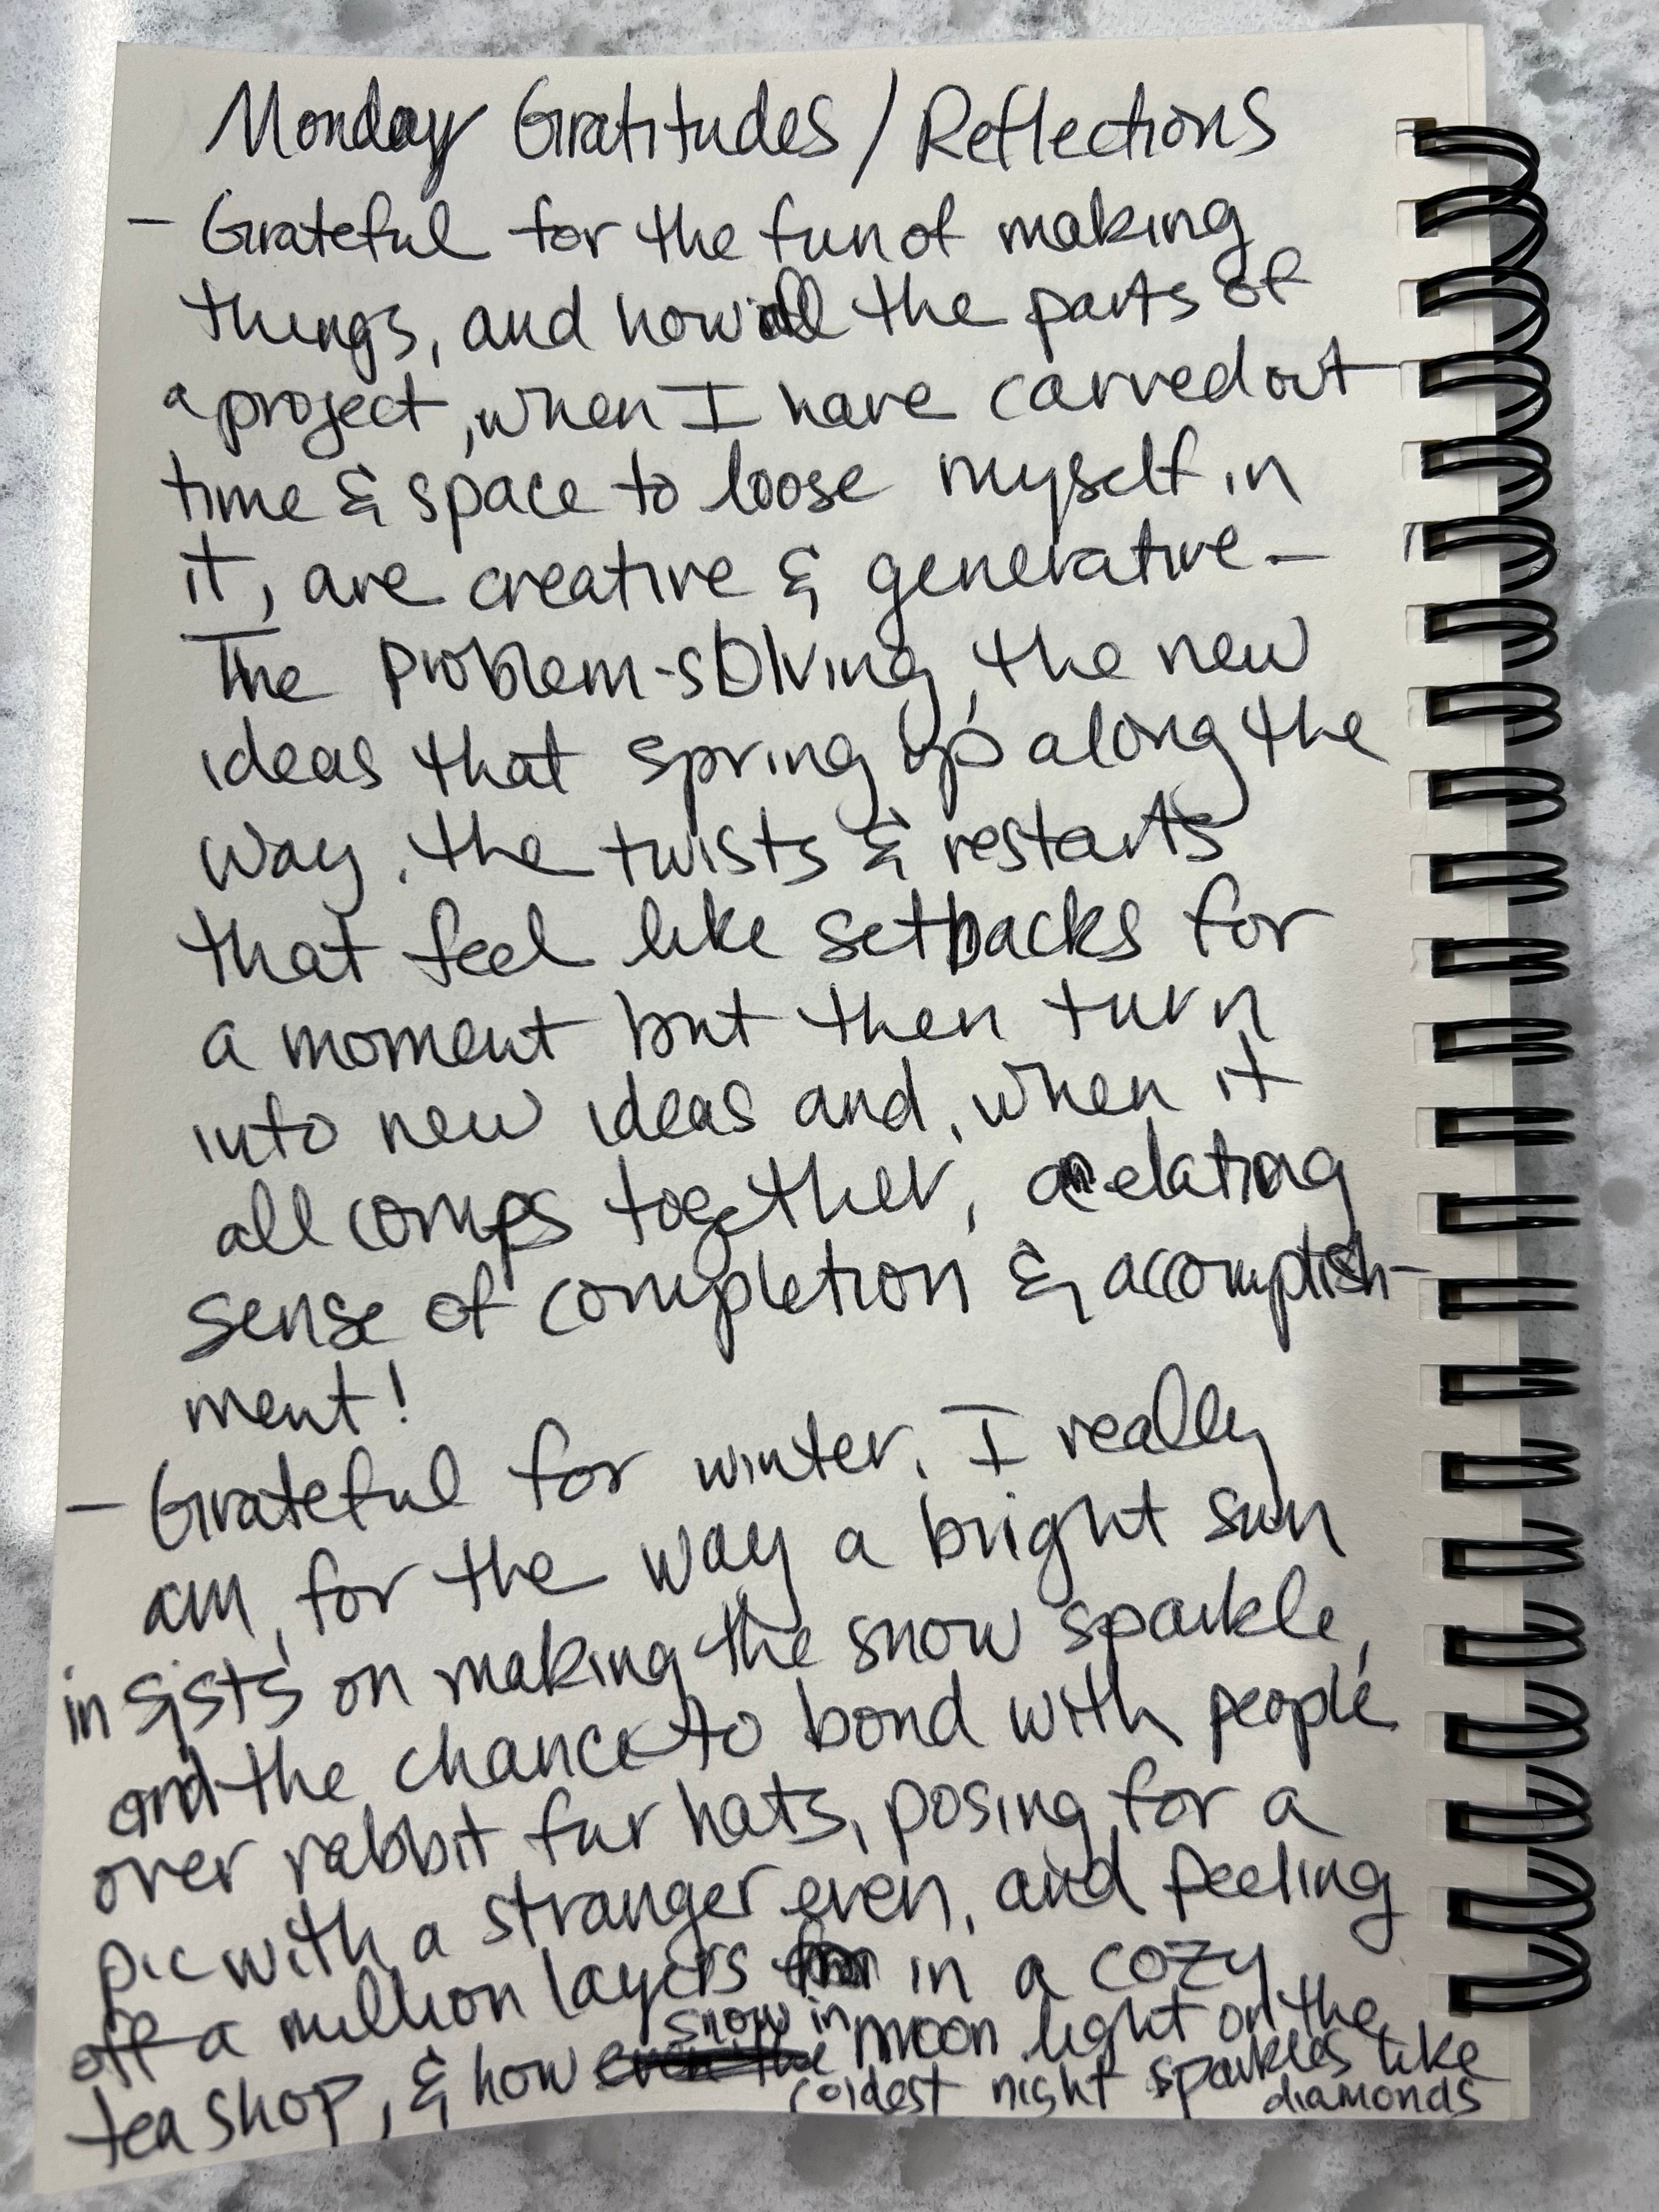 Monday Gratitudes / Reflections
- Grateful for the fun of making
things, and how all the parts of
a project, when I have carved out
time & space to loose myself in
it, are creative & generative -
The problem-solving, the new
ideas that spring up along the
way, the twists & restarts
that feel like setbacks for
a moment but then turn
into new ideas and, when it
all comes together, an elating
sense of completion & accomplish-
ment!
- Grateful for winter. I really
am, for the way a bright sun
insists on making the snow sparkle,
and the chance to bond with people
over rabbit fur hats, posing for a
pic with a stranger even, and peeling
off a million layers in a cozy
tea shop, & how snow in moon light on the
coldest night sparkles like
diamonds